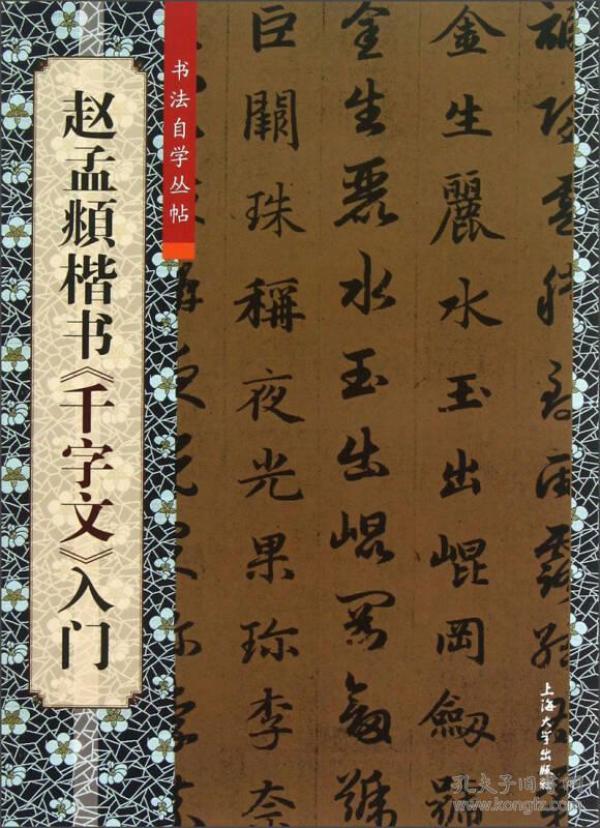 赵孟頫楷书《千字文》入门
书法自学丛帖
金生麗水玉出崐岡劒號
金生麗水玉出崐岡劒號
巨闕珠稱夜光果珍李奈
上海大学出版社
孔夫子旧书网
www.kongfz.com